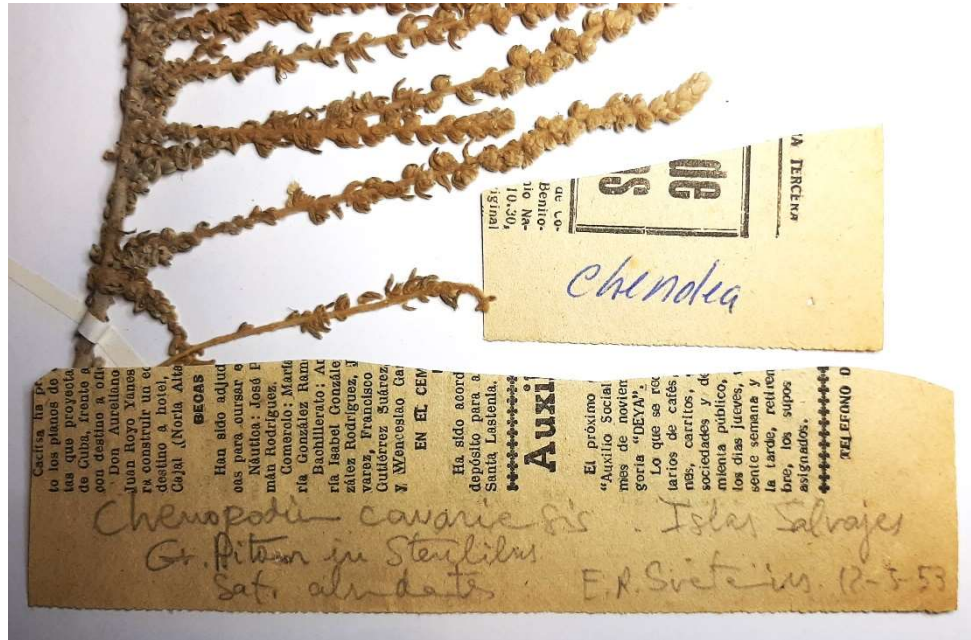 TA TERCERA
de
as
de Co-
Benito-
io Na-
10.30,
riginal
Chendea
Cacitsa ha pr
to los planos de
tas que proyecta
de Cuba, frente a
con destino a ofic
Don Aureliano
Juan Royo Yanes
ra construir un ed
destino a hotel,
Cajal (Norla Alta
BECAS
Han sido adjud
cas para cursar e
Náutica: José P
mán Rodríguez.
Comercio: Marta
ría González Ram
Bachillerato: Ar
ría Isabel Gonzále
zález Rodríguez, J
varez, Francisco
Gutiérrez Suárez,
y Wenceslao Gar
EN EL CEM
Ha sido acord
depósito para a
Santa Lastenia.
Auxil
El próximo
"Auxilio Social
mes de noviem
goría "DEYA".
Lo que se rec
tarios de cafés,
nes, carritos,
sociedades y de
mienta público,
los días jueves,
sente semana y
la tarde, retiren
bre, los supos
asignados.
TELEFONO D
Chenopodiu canariesis. Islas Salvajes
Gr. Piton in Sterilibus
Sat. abundants E.R. Sventenius. 12-5-53